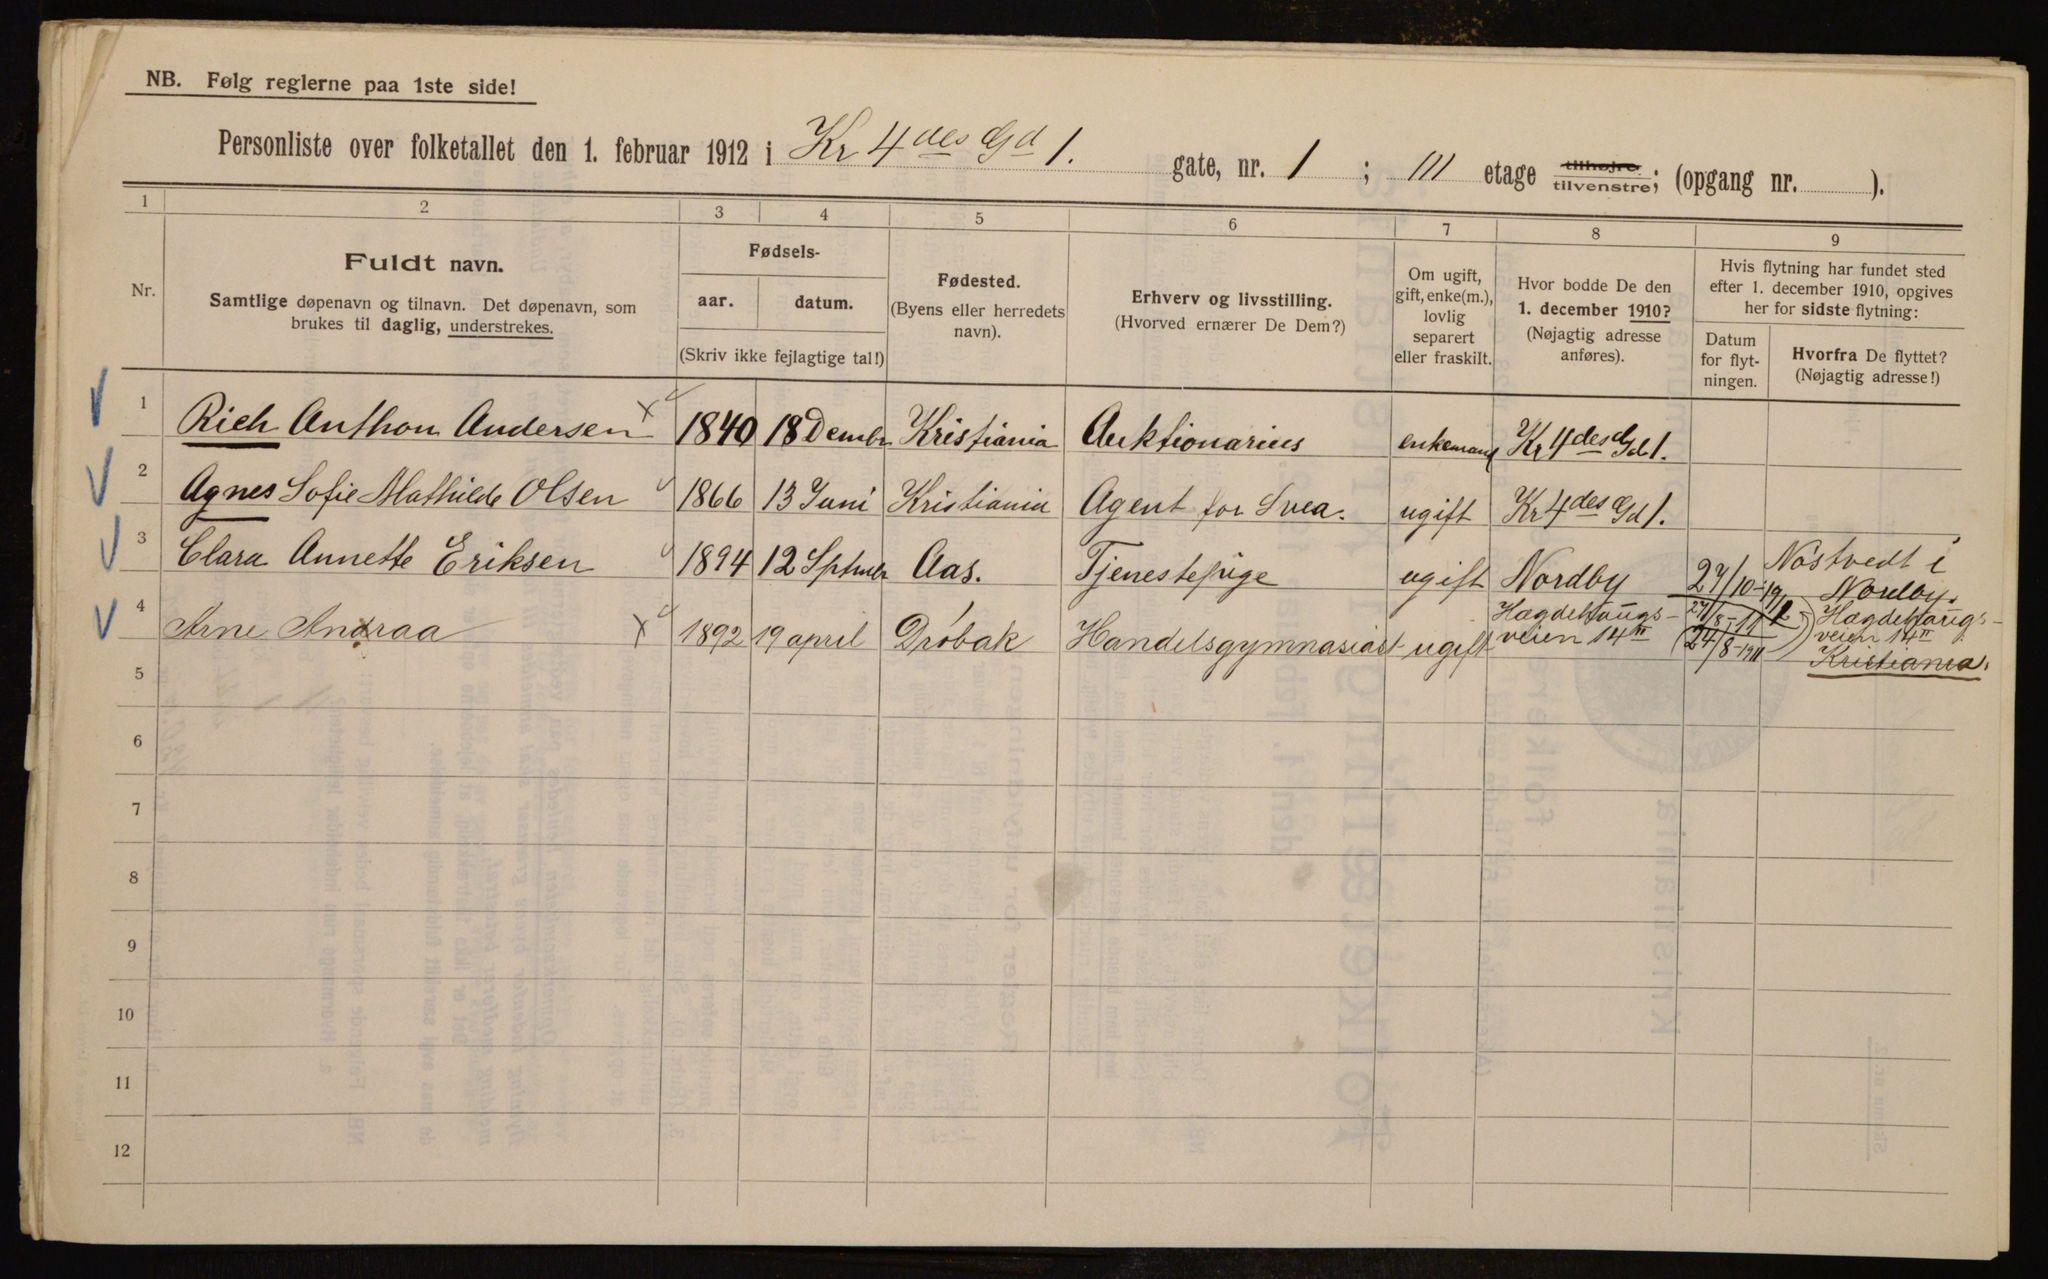 NB. Følg reglerne paa 1ste side!
Personliste over folketallet den 1. februar 1912 i Kr 4des Gd 1. gate, nr. 1 ; III etage tilhøjre. tilvenstre; (opgang nr. ).
1 2 3 4 5 6 7 8 9
Nr.
Fuldt navn.
Samtlige døpenavn og tilnavn. Det døpenavn, som
brukes til daglig, understrekes.
Fødsels-
aar. datum.
(Skriv ikke fejlagtige tal!)
Fødested.
(Byens eller herredets
navn).
Erhverv og livsstilling.
(Hvorved ernærer De Dem?)
Om ugift,
gift, enke(m.),
lovlig
separert
eller fraskilt.
Hvor bodde De den
1. december 1910?
(Nøjagtig adresse
anføres).
Hvis flytning har fundet sted
efter 1. december 1910, opgives
her for sidste flytning:
Datum
for flyt-
ningen.
Hvorfra De flyttet?
(Nøjagtig adresse!)
1 Rich Anthon Andersen 1840 18 Dembr Kristiania Auktionarius enkemand Kr 4des Gd 1.
2 Agnes Sofie Mathilde Olsen 1866 13 Juni Kristiania Agent for Svea. ugift Kr 4des Gd 1.
3 Clara Annette Eriksen 1894 12 Sptmbr Aas. Tjenestepige ugift Nordby 27/10-1911 Nøstvedt i
Nordby.
4 Arne Andraa 1892 19 april Drøbak Handelsgymnasiast ugift Hægdehaugs-
veien 14 II 24/8-1911 Hægdehaugs-
veien 14 II
Kristiania.
5
6
7
8
9
10
11
12